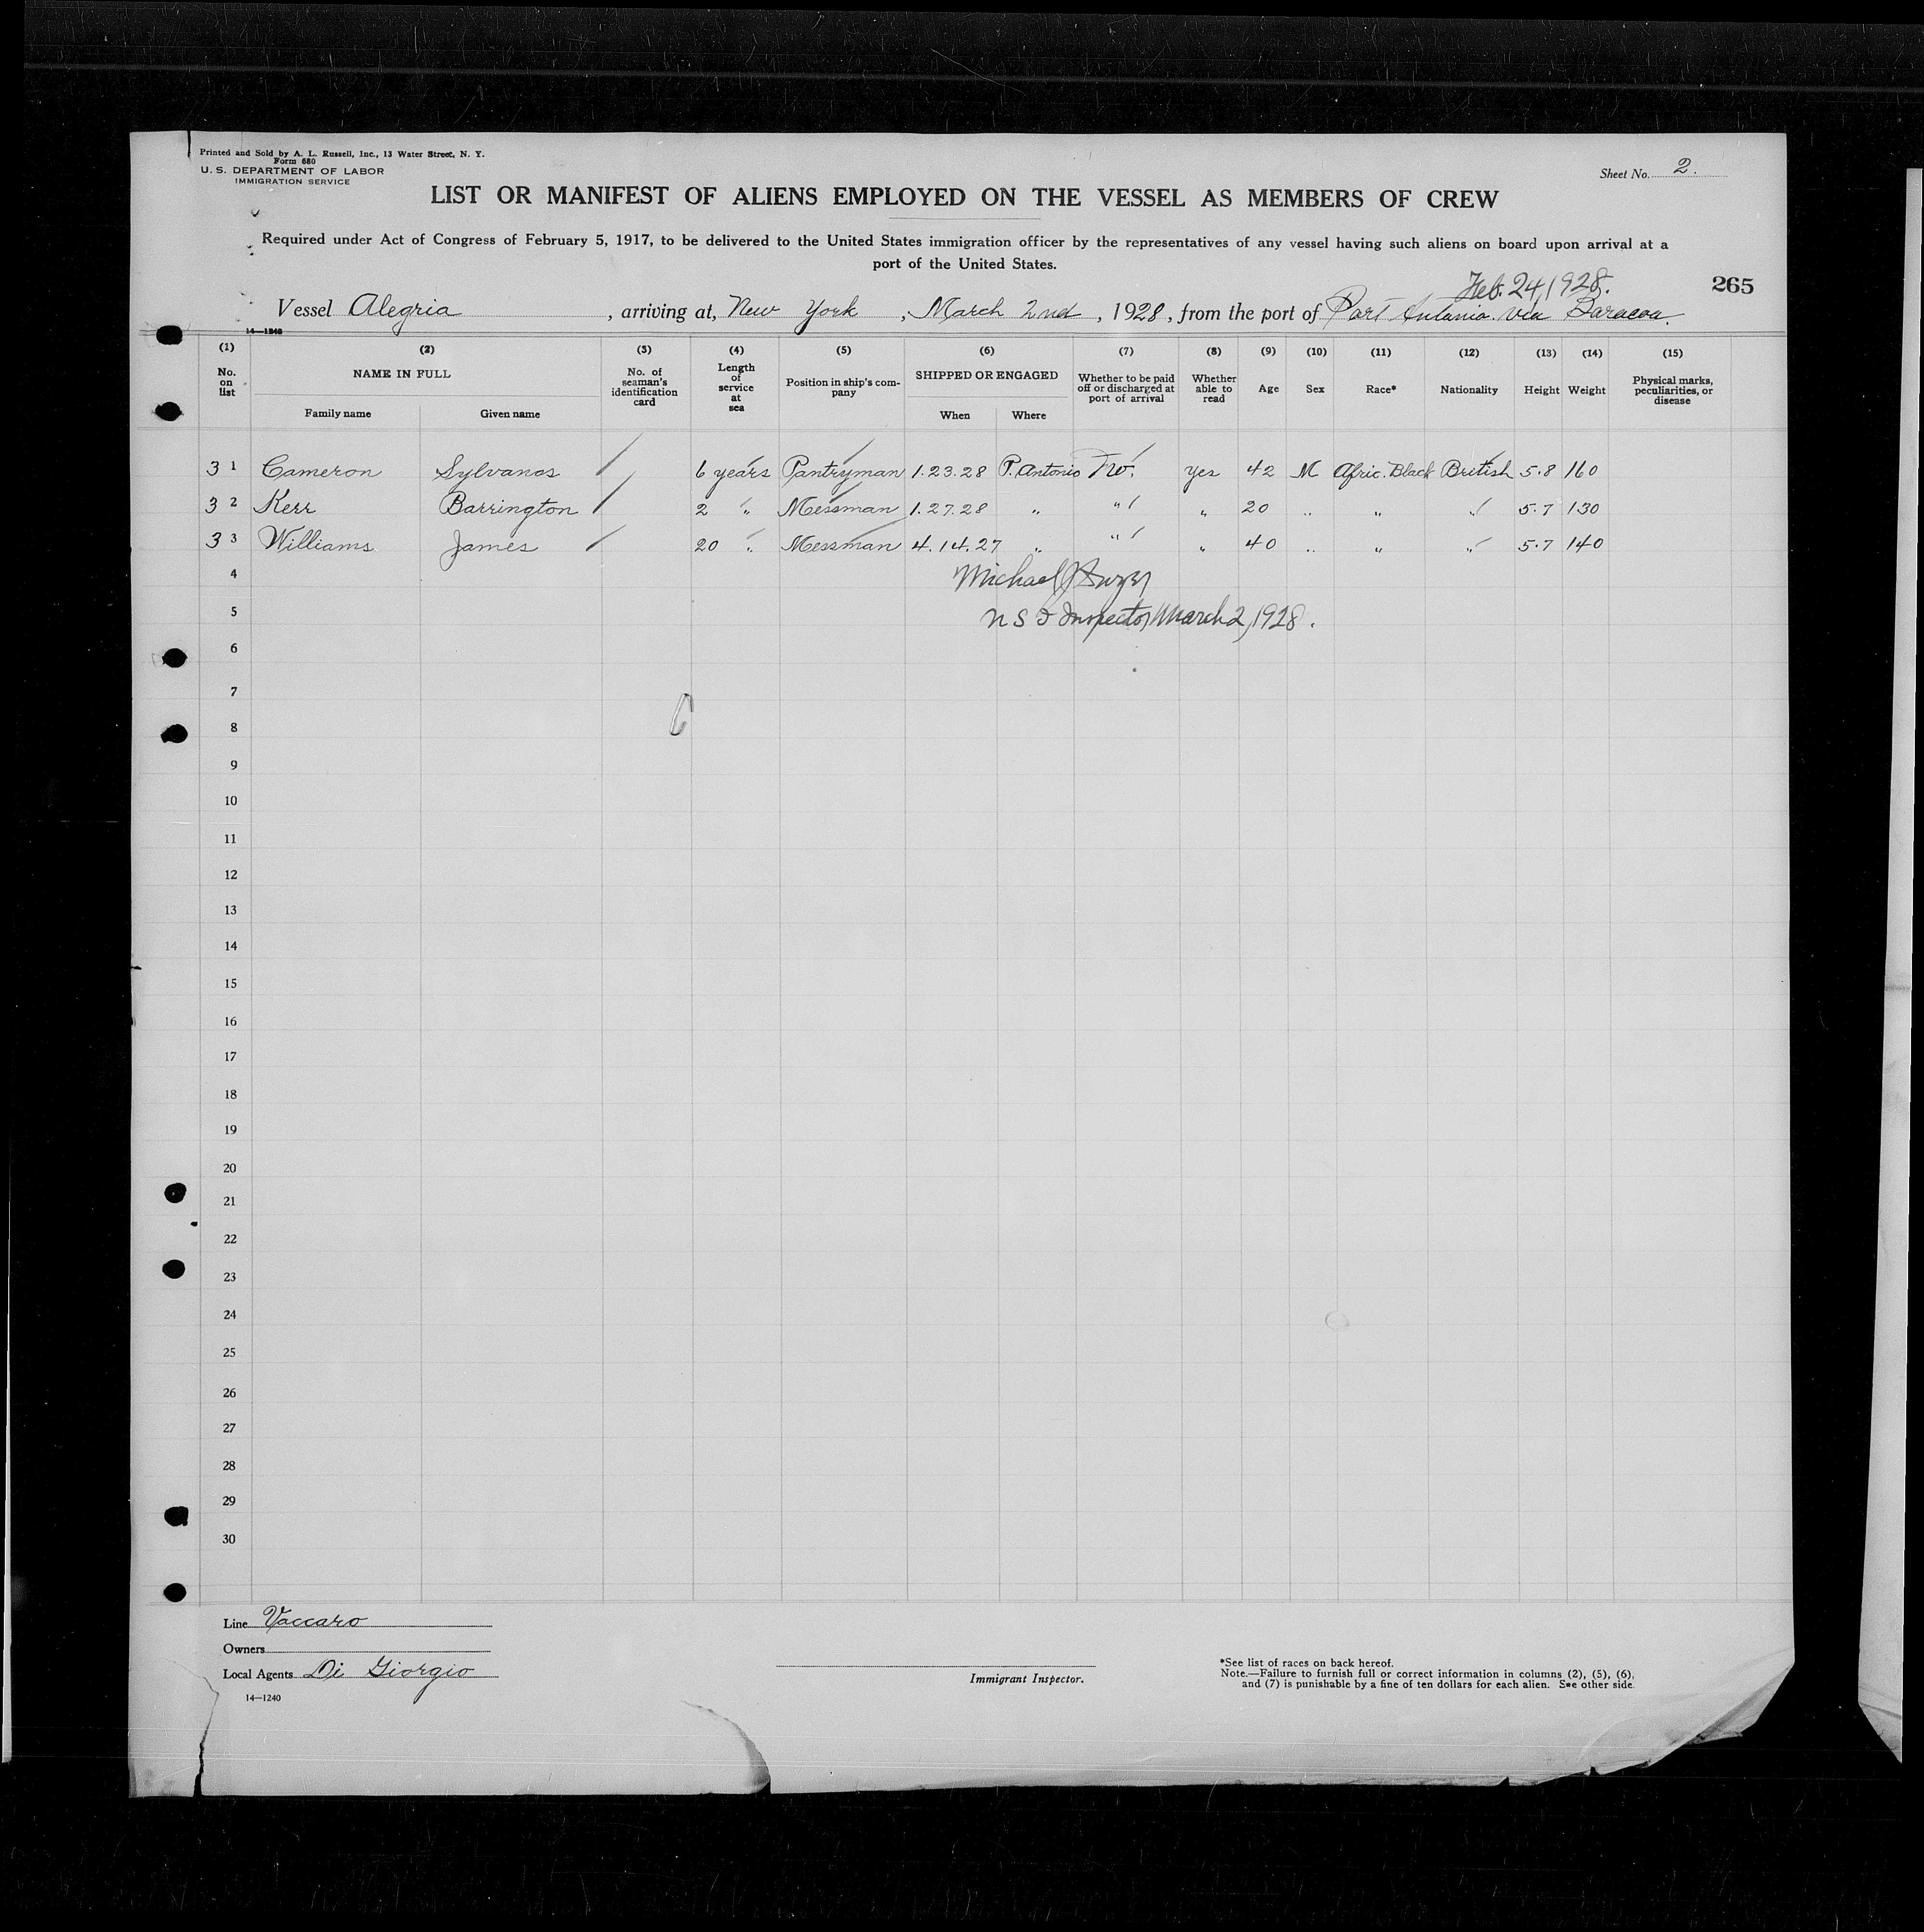 Printed and Sold by A. L. Russell, Inc., 13 Water Street, N. Y.
Form 680
U. S. DEPARTMENT OF LABOR
IMMIGRATION SERVICE
Sheet No. 2.
LIST OR MANIFEST OF ALIENS EMPLOYED ON THE VESSEL AS MEMBERS OF CREW
Required under Act of Congress of February 5, 1917, to be delivered to the United States immigration officer by the representatives of any vessel having such aliens on board upon arrival at a
port of the United States.
Feb. 24, 1928.
265
Vessel Alegria , arriving at, New York , March 2nd , 1928, from the port of Port Antonio. via Baracoa.
14—1240
(1) (2) (3) (4) (5) (6) (7) (8) (9) (10) (11) (12) (13) (14) (15)
No. on list NAME IN FULL Family name Given name No. of seaman's identification card Length of service at sea Position in ship's company SHIPPED OR ENGAGED When Where Whether to be paid off or discharged at port of arrival Whether able to read Age Sex Race* Nationality Height Weight Physical marks, peculiarities, or disease
3 1 Cameron Sylvanos 6 years Pantryman 1.23.28 P. Antonio No. yes 42 M Afric. Black British 5.8 160
3 2 Kerr Barrington 2 " Messman 1.27.28 " " " 20 " " " 5.7 130
3 3 Williams James 20 " Messman 4.14.27 " " " 40 " " " 5.7 140
4 Michael
5 Inspector March 2, 1928.
6
7
8
9
10
11
12
13
14
15
16
17
18
19
20
21
22
23
24
25
26
27
28
29
30
Line Vaccaro
Owners
Local Agents Di Giorgio
14—1240
Immigrant Inspector.
*See list of races on back hereof.
Note.—Failure to furnish full or correct information in columns (2), (5), (6),
and (7) is punishable by a fine of ten dollars for each alien. See other side.